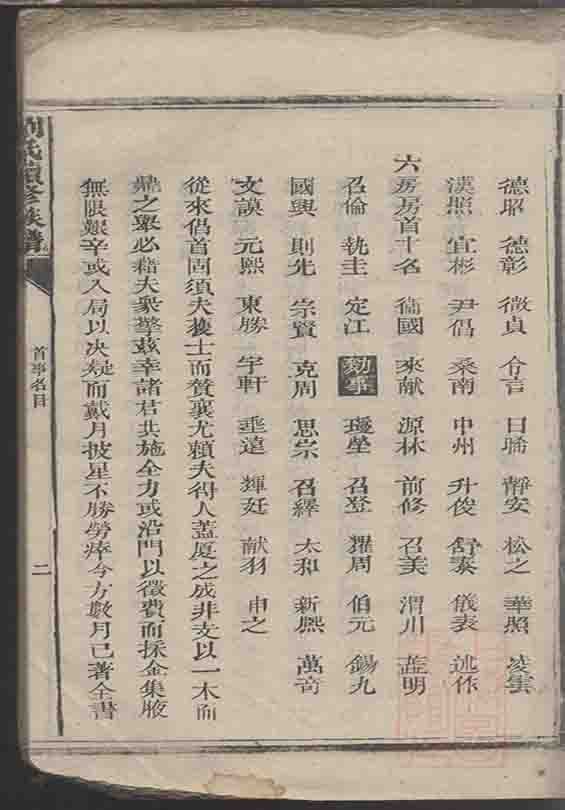 德昭 德彰 徵貞 令言 日晞 靜安 松之 華照 凌雲
漢照 宜彬 尹倡 桑南 中州 升俊 舒泰 儀表 述作
六房房首十名 衞國 來献 源林 前修 召美 渭川 藍明
召倫 執圭 定江 勷事 璦瑩 召登 耀周 伯元 錫九
國興 則先 崇賢 克周 思宗 召繹 太和 新熙 萬奇
文謨 元熙 東勝 宇軒 垂遠 輝廷 献羽 申之
從來倡首固須夫獲士而贊襄尤賴夫得人蓋厦之成非支以一木而
鼎之舉必藉夫衆擎茲幸諸君共施全力或沿門以徵費而採金集腋
無限艱辛或入局以决疑而戴月披星不勝勞瘁今方數月已著全書
劉氏續修族譜
首事名目
二